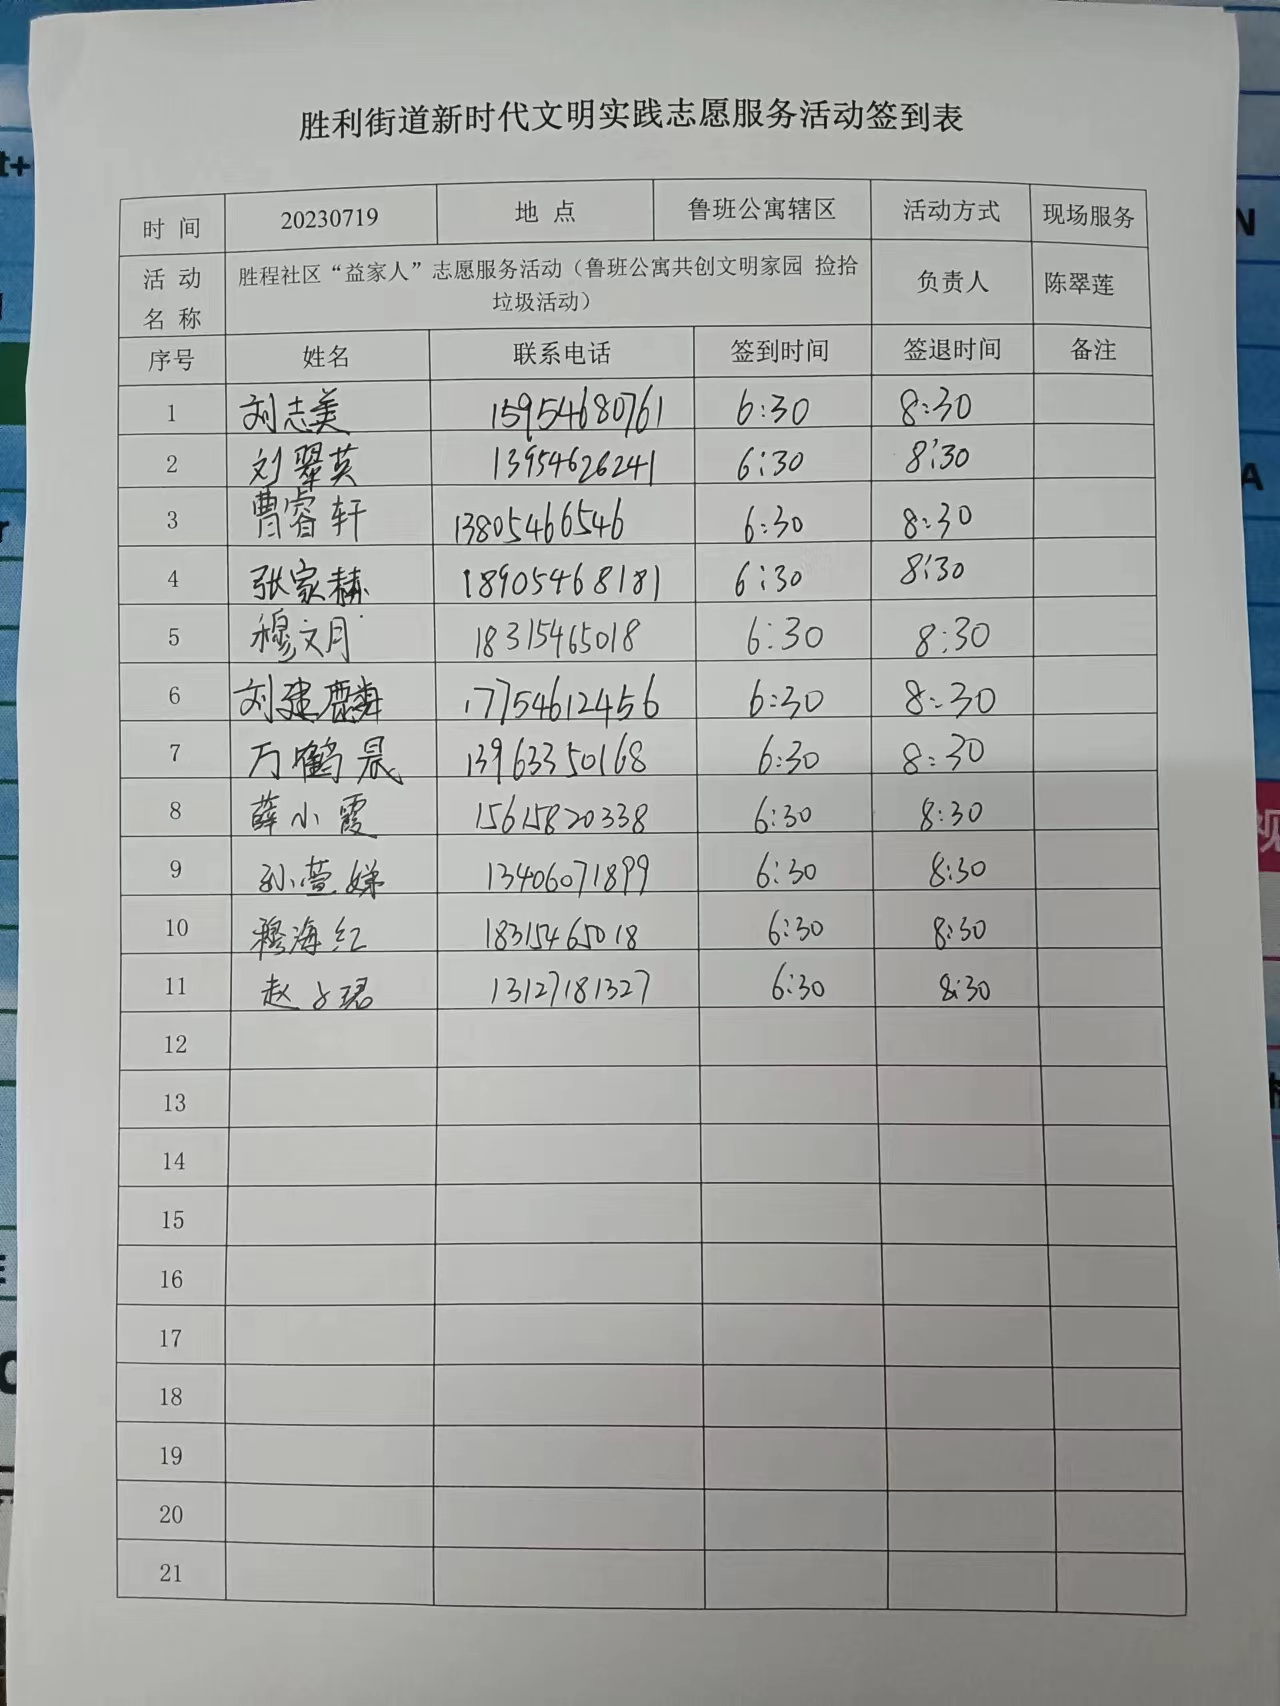 胜利街道新时代文明实践志愿服务活动签到表
时 间 20230719 地 点 鲁班公寓辖区 活动方式 现场服务
活 动 名 称 胜程社区“益家人”志愿服务活动（鲁班公寓共创文明家园 捡拾垃圾活动） 负责人 陈翠莲
序号 姓名 联系电话 签到时间 签退时间 备注
1 刘志美 15954680761 6:30 8:30
2 刘翠英 13954626241 6:30 8:30
3 曹睿轩 13805466546 6:30 8:30
4 张家赫 18905468181 6:30 8:30
5 穆文月 18315465018 6:30 8:30
6 刘建麟 17754612456 6:30 8:30
7 万鹤晨 13963350168 6:30 8:30
8 薛小霞 15615820338 6:30 8:30
9 孙萱娣 13406071899 6:30 8:30
10 穆海红 18315465018 6:30 8:30
11 赵 珺 13127181327 6:30 8:30
12
13
14
15
16
17
18
19
20
21